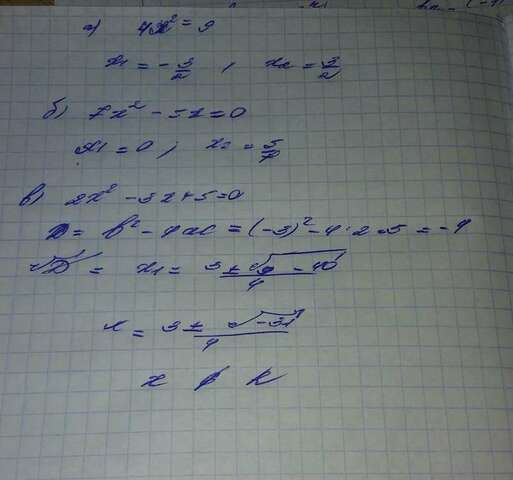 а) 4x² = 9
x₁ = -3/2 , x₂ = 3/2
б) 7x² - 5x = 0
x₁ = 0 ; x₂ = 5/7
в) 2x² - 3x + 5 = 0
D = b² - 4ac = (-3)² - 4·2·5 =
√D = x₁ = 3 ± √9 - 40 / 4
x = 3 ± √-31 / 4
x ∉ R